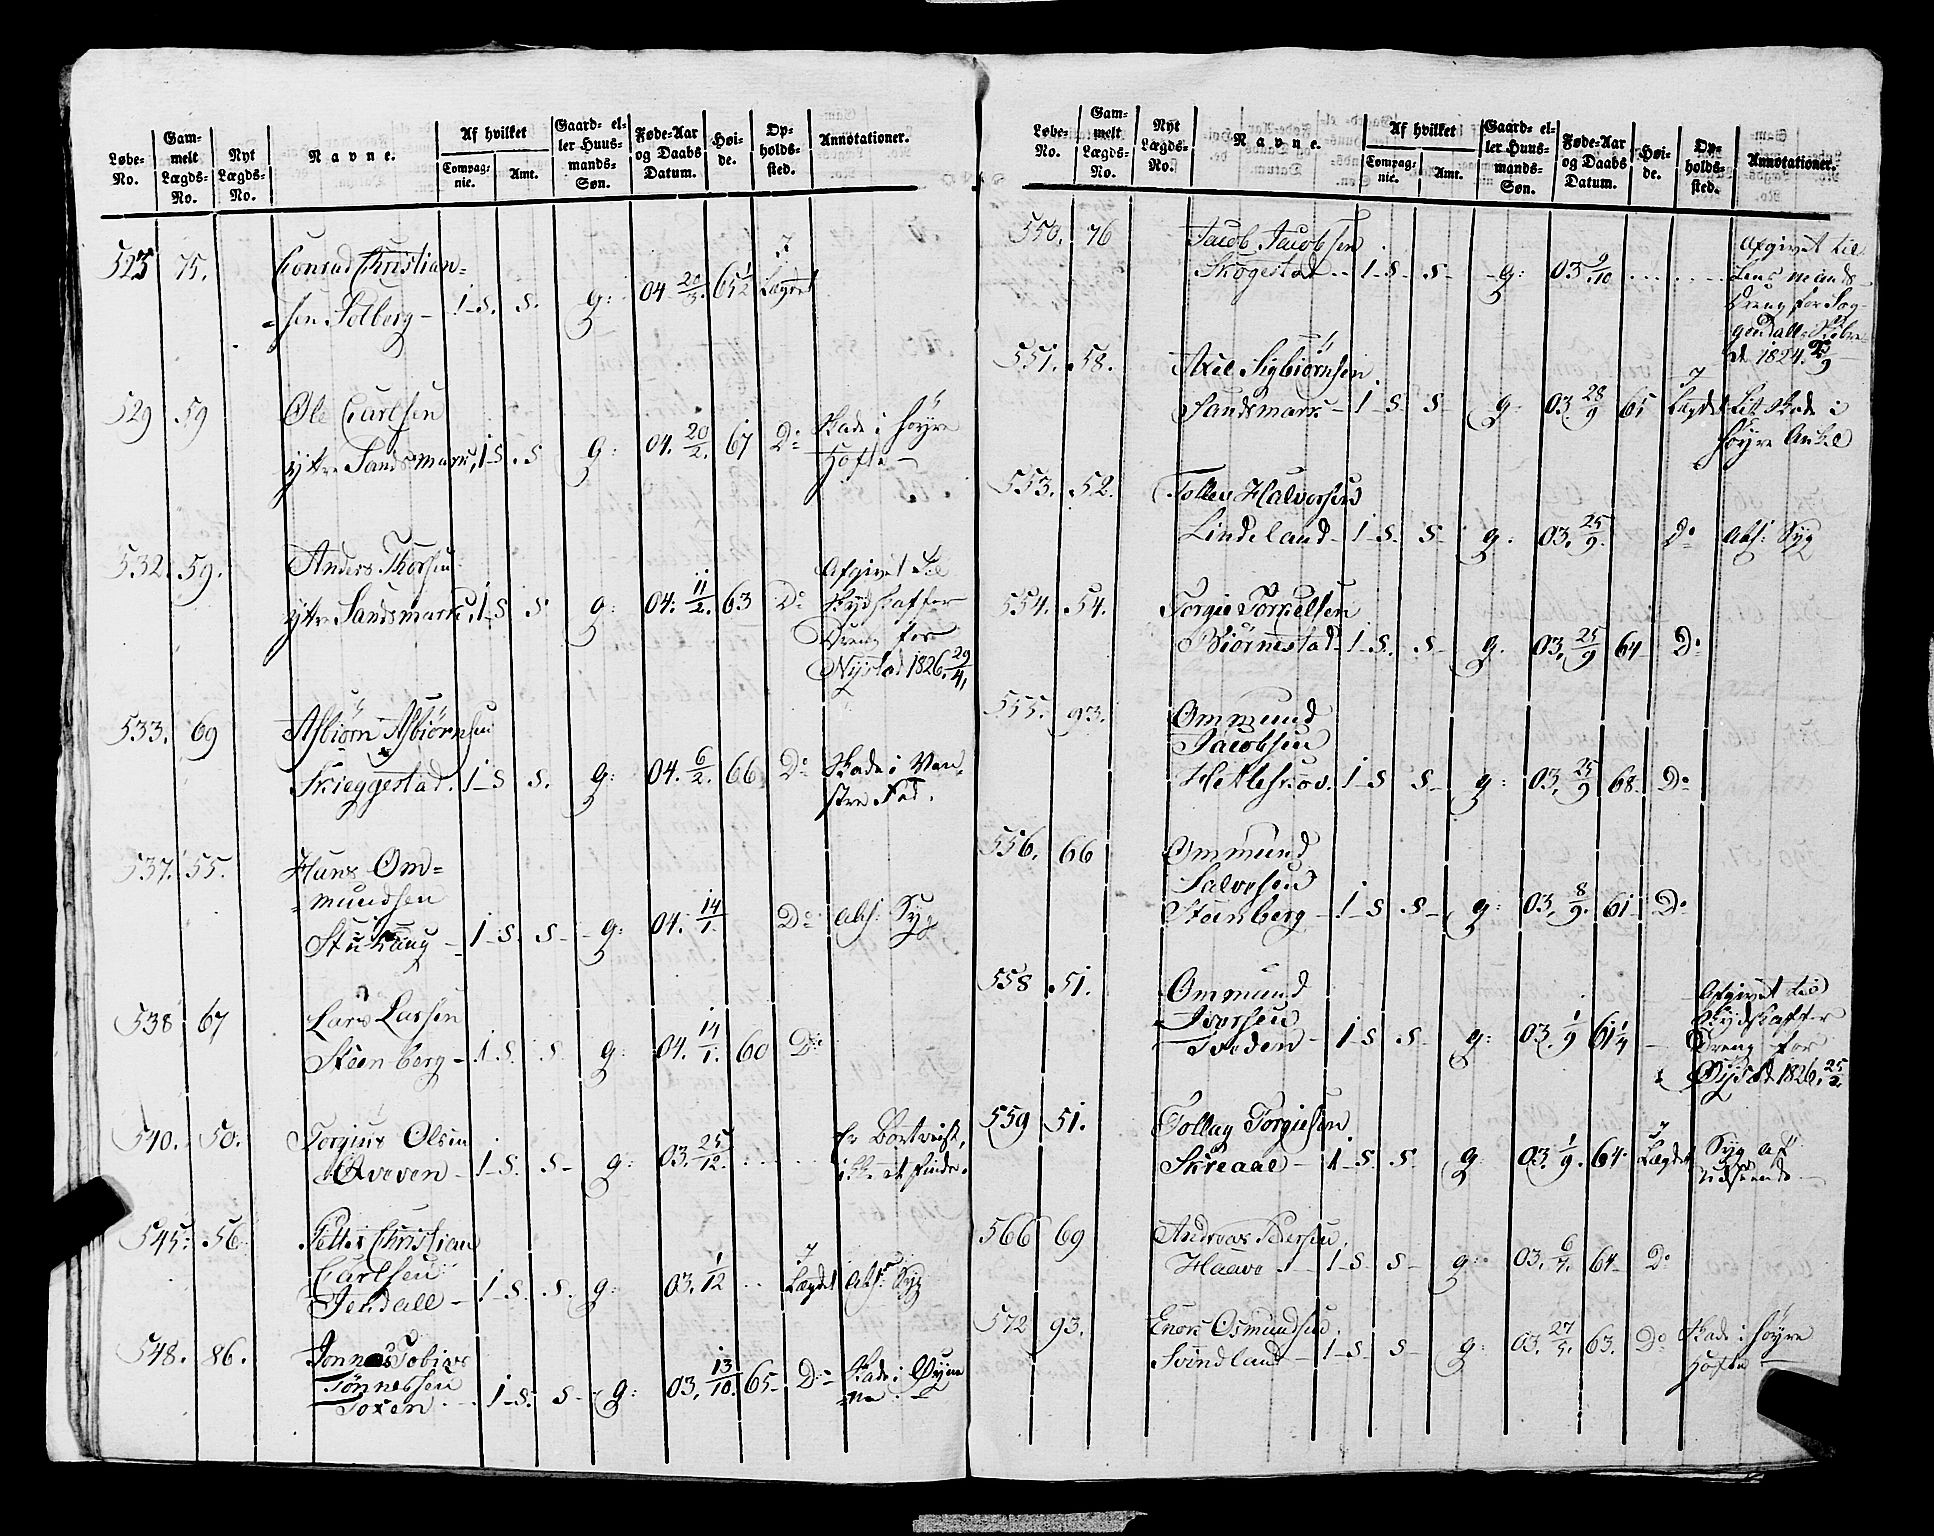 Løbe-No. Gammelt Lægds-No. Nyt Lægds-No. Navne. Af hvilket Compagnie. Amt. Gaard- eller Huusmands-Søn. Føde-Aar og Daabs Datum. Høide. Opholdssted. Annotationer.
523 75.
Conrad Christian=
=sen Solberg – 1 – S. S. g: 04 20/3. 65 1/2 I Lægdet
529 59
Ole Carlsen
ytre Sandsmark, 1 S. S g: 04. 20/2. 67 Do Skade i høyre
Hofte –
532. 59.
Anders Thorsen
ytre Sandsmark, 1 – S S g: 04. 11/2. 63 Do Afgivet til
Skydskaffer
Dreng for
Nystad 1826. 29/4,
533. 69
Asbiørn Asbiørnsen
Skieggestad. 1 – S S. g: 04. 6/2. 66 Do Skade i Ven-
stre Fod.
537. 55.
Hans Om=
=mundsen
– 1 – S. S – g: 04. 14/1. Do abs: Syg
538 67
Lars Larsen
Steenberg – 1 – S. S. g: 04. 14/1. 60 Do
540. 50.
Torgius Olsen
– 1 – S. S – g: 03. 25/12. Er Bortreist,
ikke at finde.
545. 56
Petter Christian
Carlsen
Jerdall – 1 – S. S. g: 03. 1/12 I Lægdet abs: Syg
548. 86.
Jonnas Tobias
Tønnessen
Toxen 1 – S. S – g: 03. 13/10. 65 – Do Skade i Øyne
ne –
Løbe-No. Gammelt Lægds-No. Nyt Lægds-No. Navne. Af hvilket Compagnie. Amt. Gaard- eller Huusmands-Søn. Føde-Aar og Daabs Datum. Høide. Opholdssted. Annotationer.
550. 76
Jacob Jacobsen
Skogestad – 1 – S – S – g: 03 9/10 Afgivet til
Lensmands
Dreng for Sog-
gendall
1824.
551. 58.
Axel Sigbiørnsen
Sandsmark – 1 – S. S – g: 03 28/9 65 I Lægdet Lit Skade i
høyre Ankel
553. 52.
Tollev Halvorsen
Lindeland – 1 – S. S – g: 03. 25/9. Do Abs: Syg
554. 54.
Torgie Torkelsen
Biørnestad – 1 – S. S – g. 03. 25/9 64 – Do
555. 93.
Ommund
Jacobsen
Hetleskov. 1 – S S – g: 03. 25/9 68 – Do
556. 66
Ommund
Salvesen
Steenberg – 1 – S S – g: 03. 8/9. 61 – Do
558 51.
Ommund
Iversen
Tveden – 1 – S S – g: 03. 1/9 61 1/4 – Afgivet til
Skydskaffer
Dreng for
1826. 25/2.
559 51.
Tollag Torgiesen
Skreaae – 1 – S. S. g: 03. 1/9. 64 – I Lægdet Syg af
Udseende –
566 69
Andreas Pedersen,
Haave – 1 – S S – g: 03. 6/7. 64 – Do
572 93.
Enok Osmundsen.
Svindland – 1 – S. S – g: 03. 27/5. 63. Do Skade i høyre
Hofte –